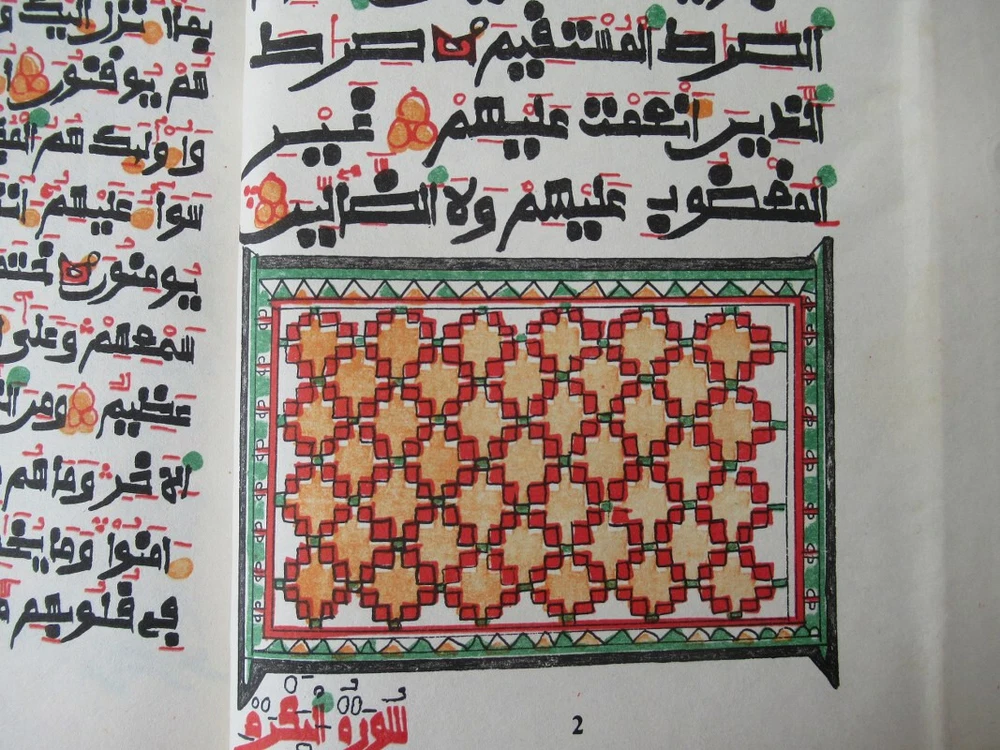 الصرط المستقيم صرط
الذين انعمت عليهم غير
المغضوب عليهم ولا الضالين
سورة البقرة
2
بما انزل اليك
هم يوقنون
واولئك هم
سواء عليهم
يومنون
سمعهم وعلى
عظيم ومن
الاخر وما هم
امنوا وما
في قلوبهم